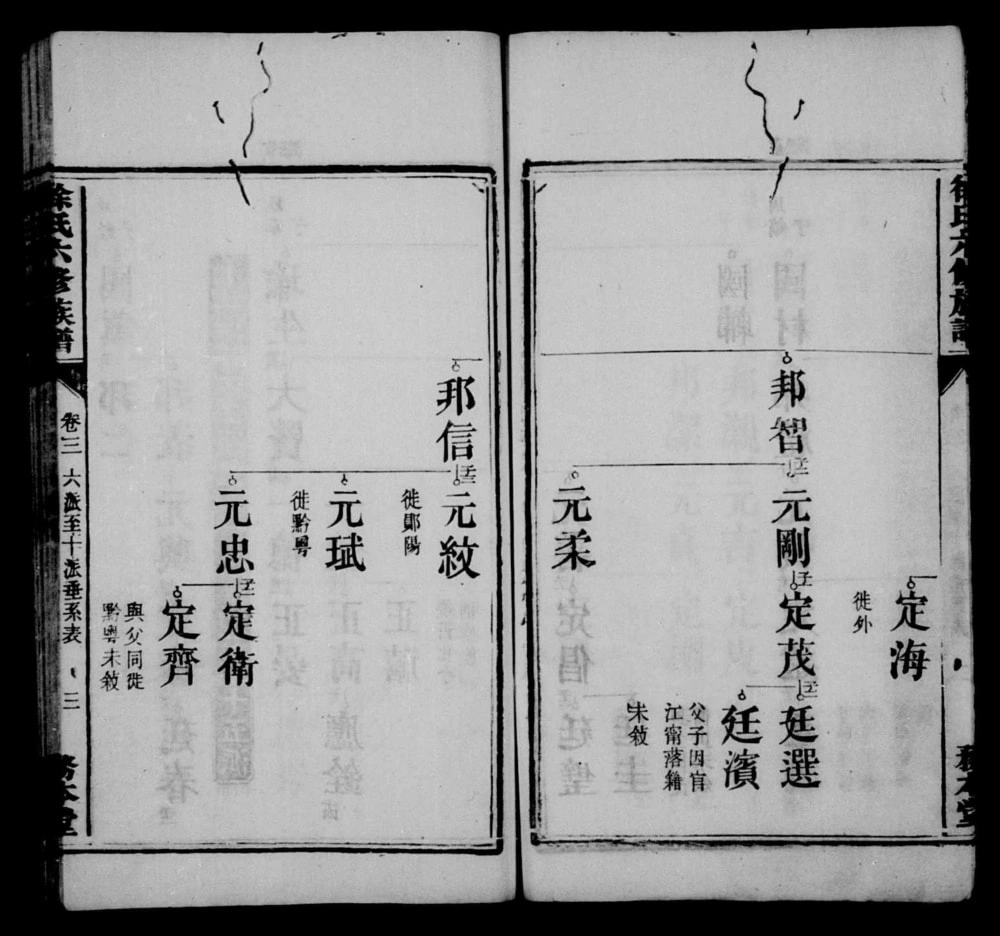 徐氏六修族譜
務本堂
定海
徙外
邦智
元剛
定茂
廷選
廷濱
父子因官
江甯落籍
未敘
元柔
邦信
元紋
徙鄖陽
元珷
徙黔粵
元忠
定衛
定齊
與父同徙
黔粵未敘
徐氏六修族譜
卷三 六派至十派垂系表 三
務本堂